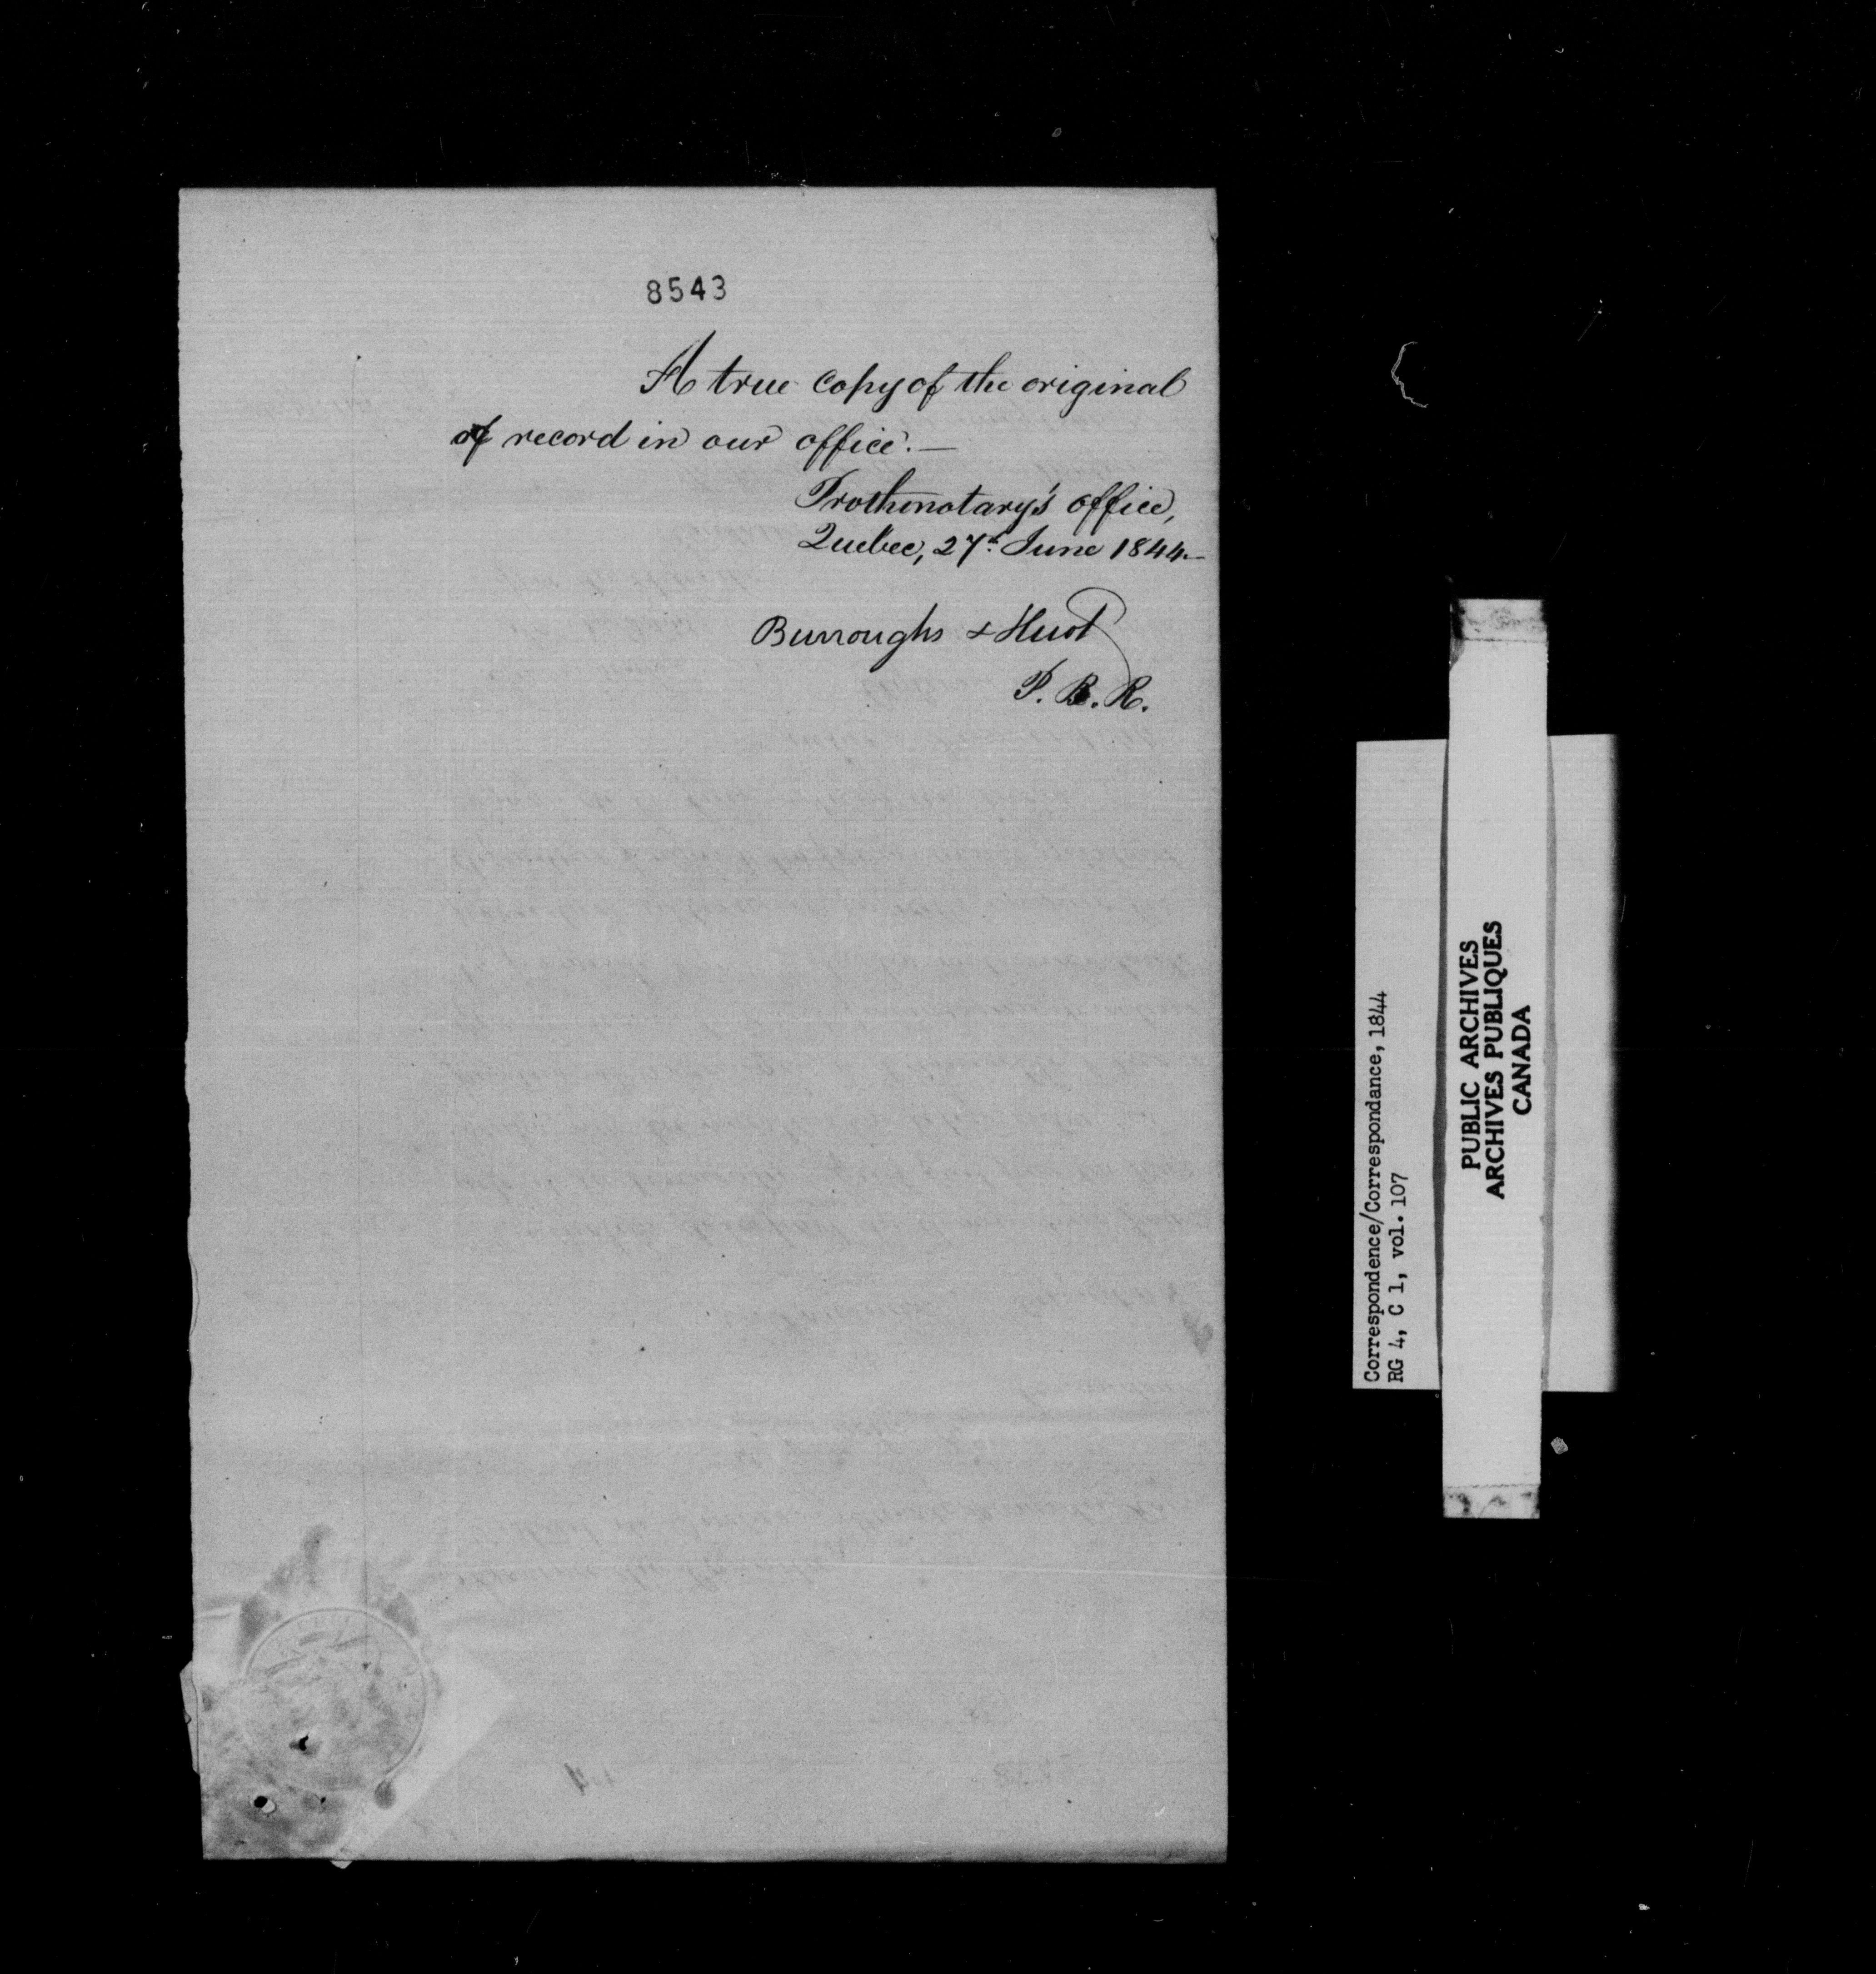 8543
A true copy of the original
of record in our office.—
Prothonotary's office,
Quebec, 27th June 1844.—
Burroughs & Huot
P. B. R.
Correspondence/Correspondance, 1844
RG 4, C 1, vol. 107
PUBLIC ARCHIVES
ARCHIVES PUBLIQUES
CANADA